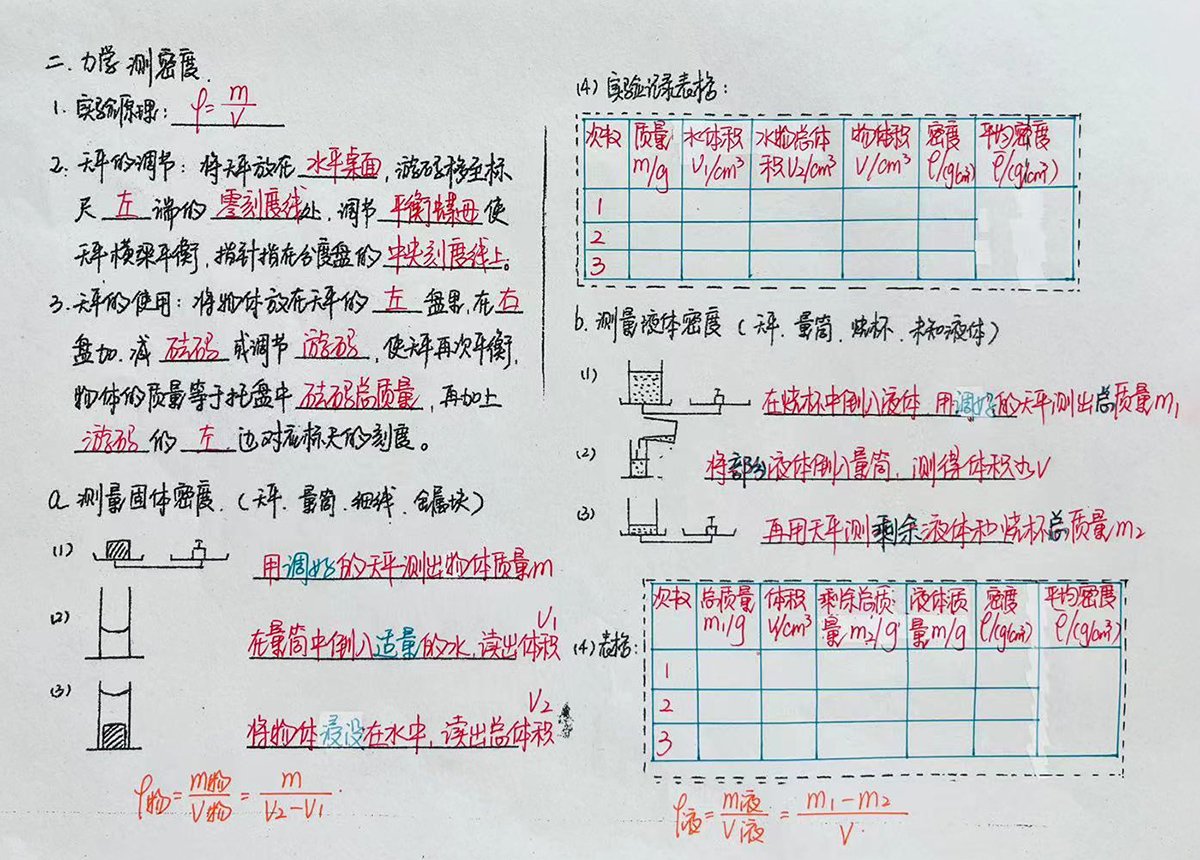 二.力学 测密度.
1.实验原理: ρ=m/V
2.天平的调节:将天平放在 水平桌面,游码移至标
尺 左 端的 零刻度线处,调节 平衡螺母 使
天平横梁平衡,指针指在分度盘的 中央刻度线上。
3.天平的使用:将物体放在天平的 左 盘里,在右
盘加.减 砝码 或调节 游码,使天平再次平衡,
物体的质量等于托盘中 砝码总质量,再加上
游码 的 左 边对应标尺的刻度。
a.测量固体密度.(天平.量筒.细线.金属块)
(1) 用调好的天平测出物体质量m
(2) 在量筒中倒入适量的水,读出体积V₁
(3) 将物体浸没在水中,读出总体积V₂
ρ物=m物/V物=m/(V₂-V₁).
(4)实验记录表格:
次数 质量m/g 水体积V₁/cm³ 水物总体积V₂/cm³ 物体积V/cm³ 密度ρ/(g/cm³) 平均密度ρ̄/(g/cm³)
1
2
3
b.测量液体密度(天平.量筒.烧杯.未知液体)
(1) 在烧杯中倒入液体 用调好的天平测出总质量m₁
(2) 将部分液体倒入量筒,测得体积为V
(3) 再用天平测剩余液体和烧杯总质量m₂
(4)表格:
次数 总质量m₁/g 体积V/cm³ 剩余总质量m₂/g 液体质量m/g 密度ρ/(g/cm³) 平均密度ρ̄/(g/cm³)
1
2
3
ρ液=m液/V液=(m₁-m₂)/V.